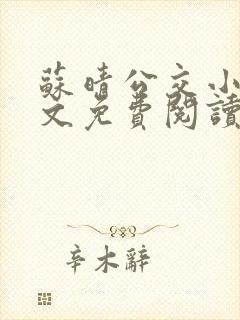 蘇晴公交小
文免費閱讀
辛木辭